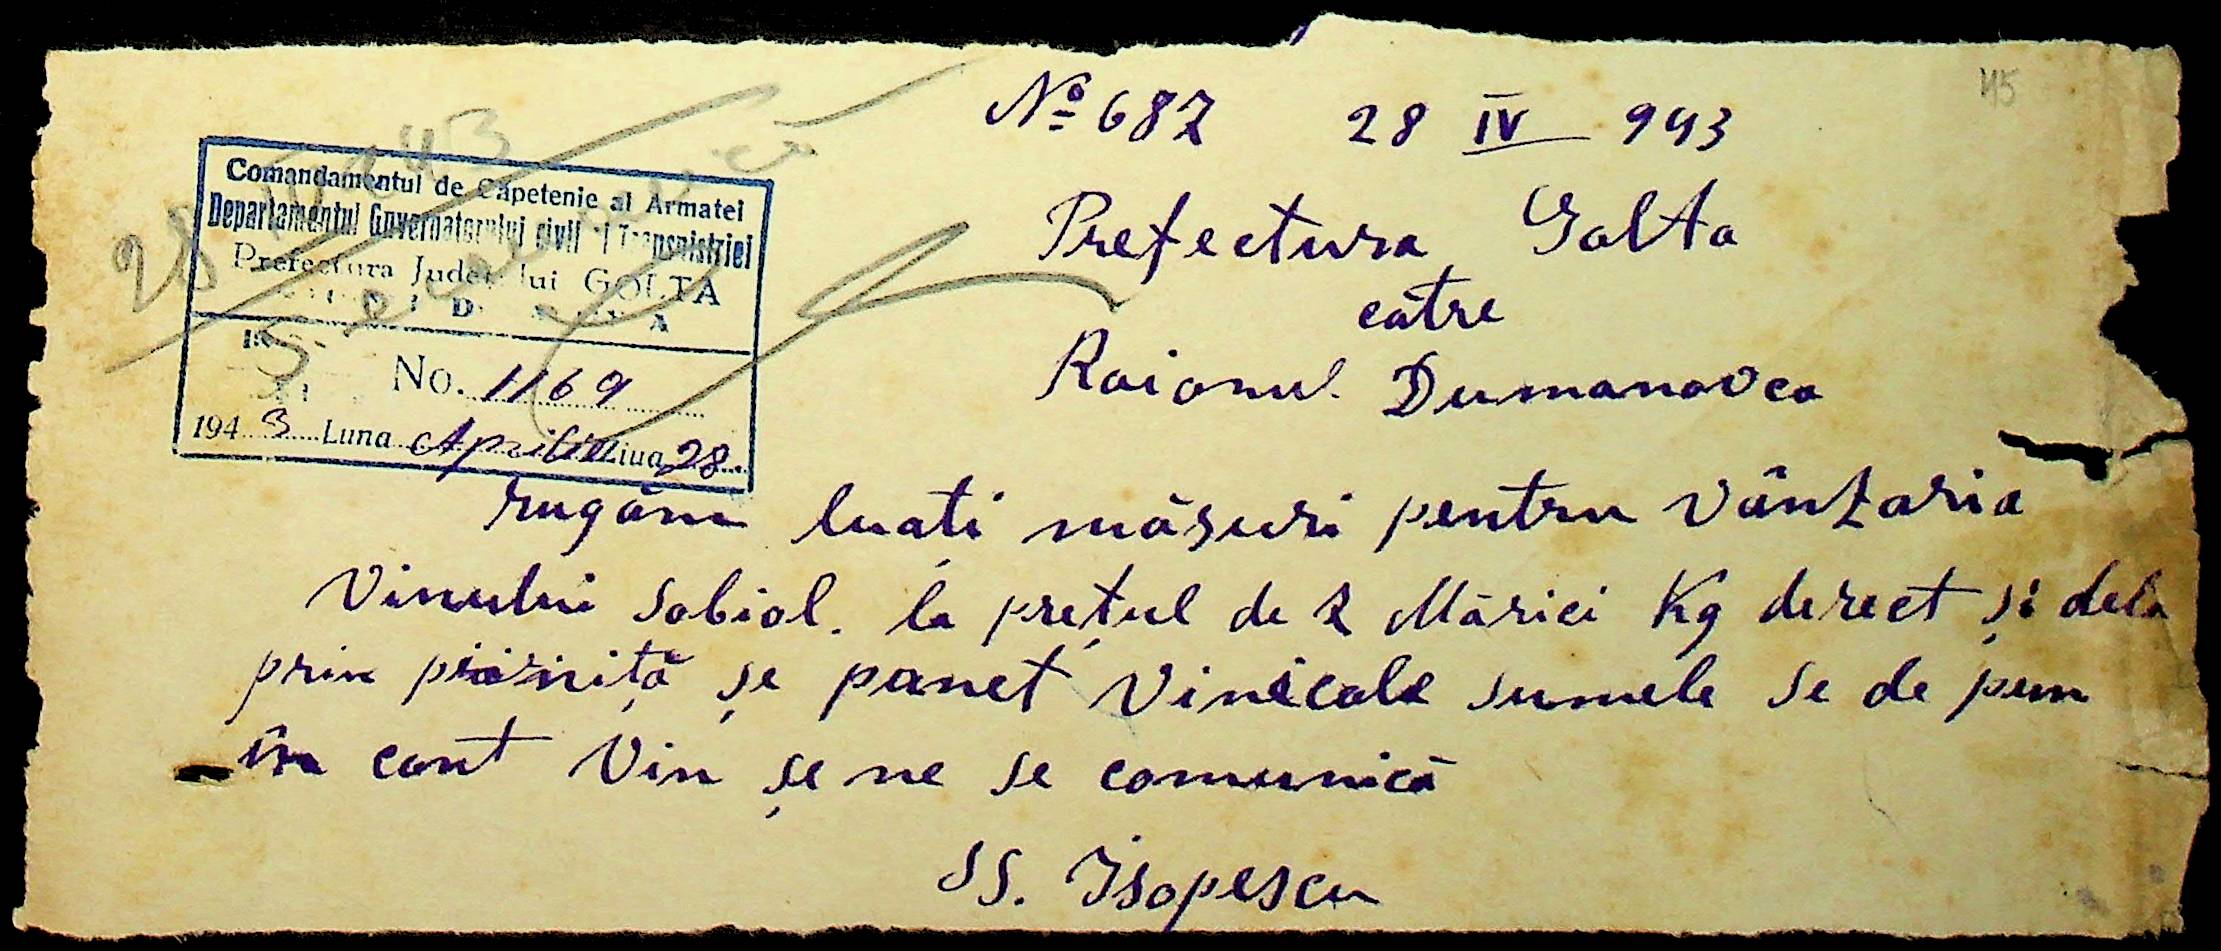 45
№ 687 28 IV 943
Prefectura Golta
către
Raionul Dumanovca
Comandamentul de Capetenie al Armatei
Departamentul Guvernatorului civil al Transnistriei
Prefectura Județului GOLTA
No. 1169
1943 Luna Aprilie Ziua 28.
rugăm luati măsuri pentru vânzaria
Vinului Sobiol. la prețul de 2 Mărici Kg derect și dela
prin și panct Vinicole sumele se de pun
în cont Vin și ne se comunică
SS. Isopescu